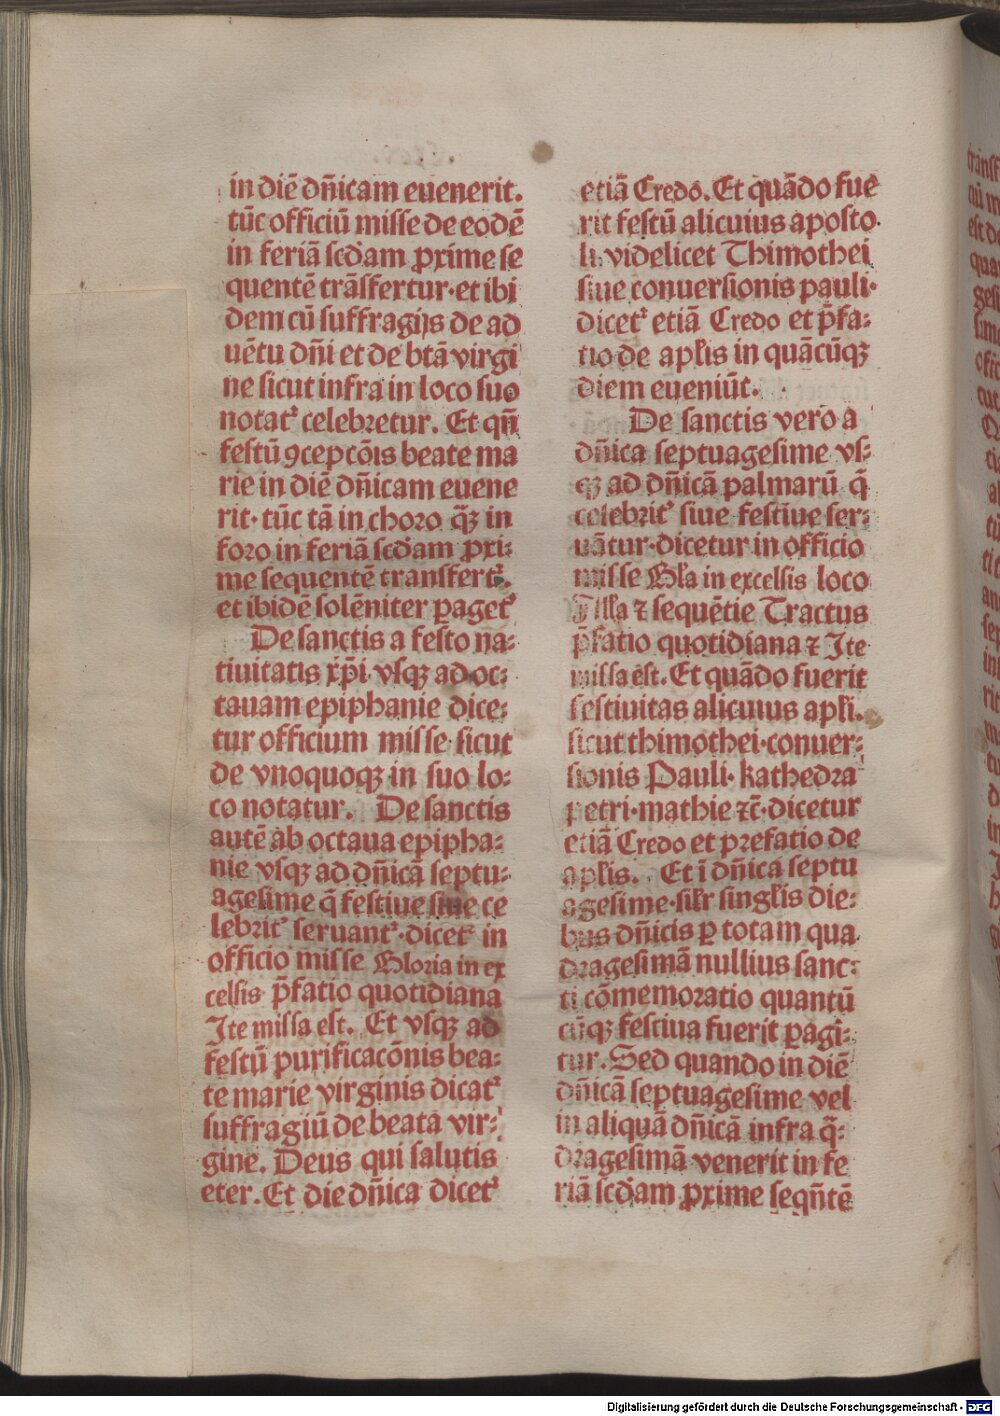 in diē dn̄icam euenerit.
tūc officiū misse de eodē
in feriā scd̄am ꝓxime se
quentē trāsfertur·et ibi
dem cū suffragijs de ad
uētu dn̄i et de btā virgi
ne sicut infra in loco suo
notat᷑ celebretur. Et qn̄
festū ꝯceptōis beate ma
rie in diē dn̄icam euene
rit· tūc tā in choro qꝫ̄ in
foro in feriā scd̄am ꝓxi⸗
me sequentē transfert᷑.
et ibidē solēniter ꝑaget᷑
De sanctis a festo na⸗
tiuitatis xp̄i· vsqꝫ ad oc⸗
tauam epiphanie dice⸗
tur officium misse sicut
de vnoquoqꝫ in suo lo⸗
co notatur. De sanctis
autē ab octaua epipha⸗
nie vsqꝫ ad dn̄icā septu⸗
agesime q̄ festiue siue ce
lebrit᷑ seruant᷑·dicet᷑ in
officio misse Gloria in ex
celsis p̄fatio quotidiana
Ite missa est. Et vsqꝫ ad
festū purificacōnis bea⸗
te marie virginis dicat᷑
suffragiū de beata vir⸗
gine. Deus qui salutis
eter. Et die dn̄ica dicet᷑
etiā Credo. Et quādo fue
rit festū alicuius aposto
li· videlicet Thimothei
siue conuersionis pauli·
dicet᷑ etiā Credo et p̄fa⸗
tio de apl̄is in quācūqꝫ
diem eueniūt.
De sanctis vero a
dn̄ica septuagesime vs⸗
qꝫ ad dn̄icā palmarū q̄
celebrit᷑ siue festiue ser⸗
uātur·dicetur in officio
misse Gl̄a in excelsis loco
All̄a ⁊ sequētie Tractus
p̄fatio quotidiana ⁊ Ite
missa est. Et quādo fuerit
festiuitas alicuius apl̄i.
sicut thimothei·conuer⸗
sionis Pauli· kathedra
petri·mathie ⁊c̄·dicetur
etiā Credo et prefatio de
apl̄is. Et ī dn̄ica septu
agesime·sil̄r singl̄is die⸗
bus dn̄icis ꝑ totam qua
dragesimā nullius sanc⸗
ti cōmemoratio quantū
cūqꝫ festiua fuerit ꝑagi⸗
tur. Sed quando in diē
dn̄icā septuagesime vel
in aliquā dn̄icā infra q̄⸗
dragesimā venerit in fe
riā scd̄am ꝓxime seqn̄tē
Digitalisierung gefördert durch die Deutsche Forschungsgemeinschaft - DFG